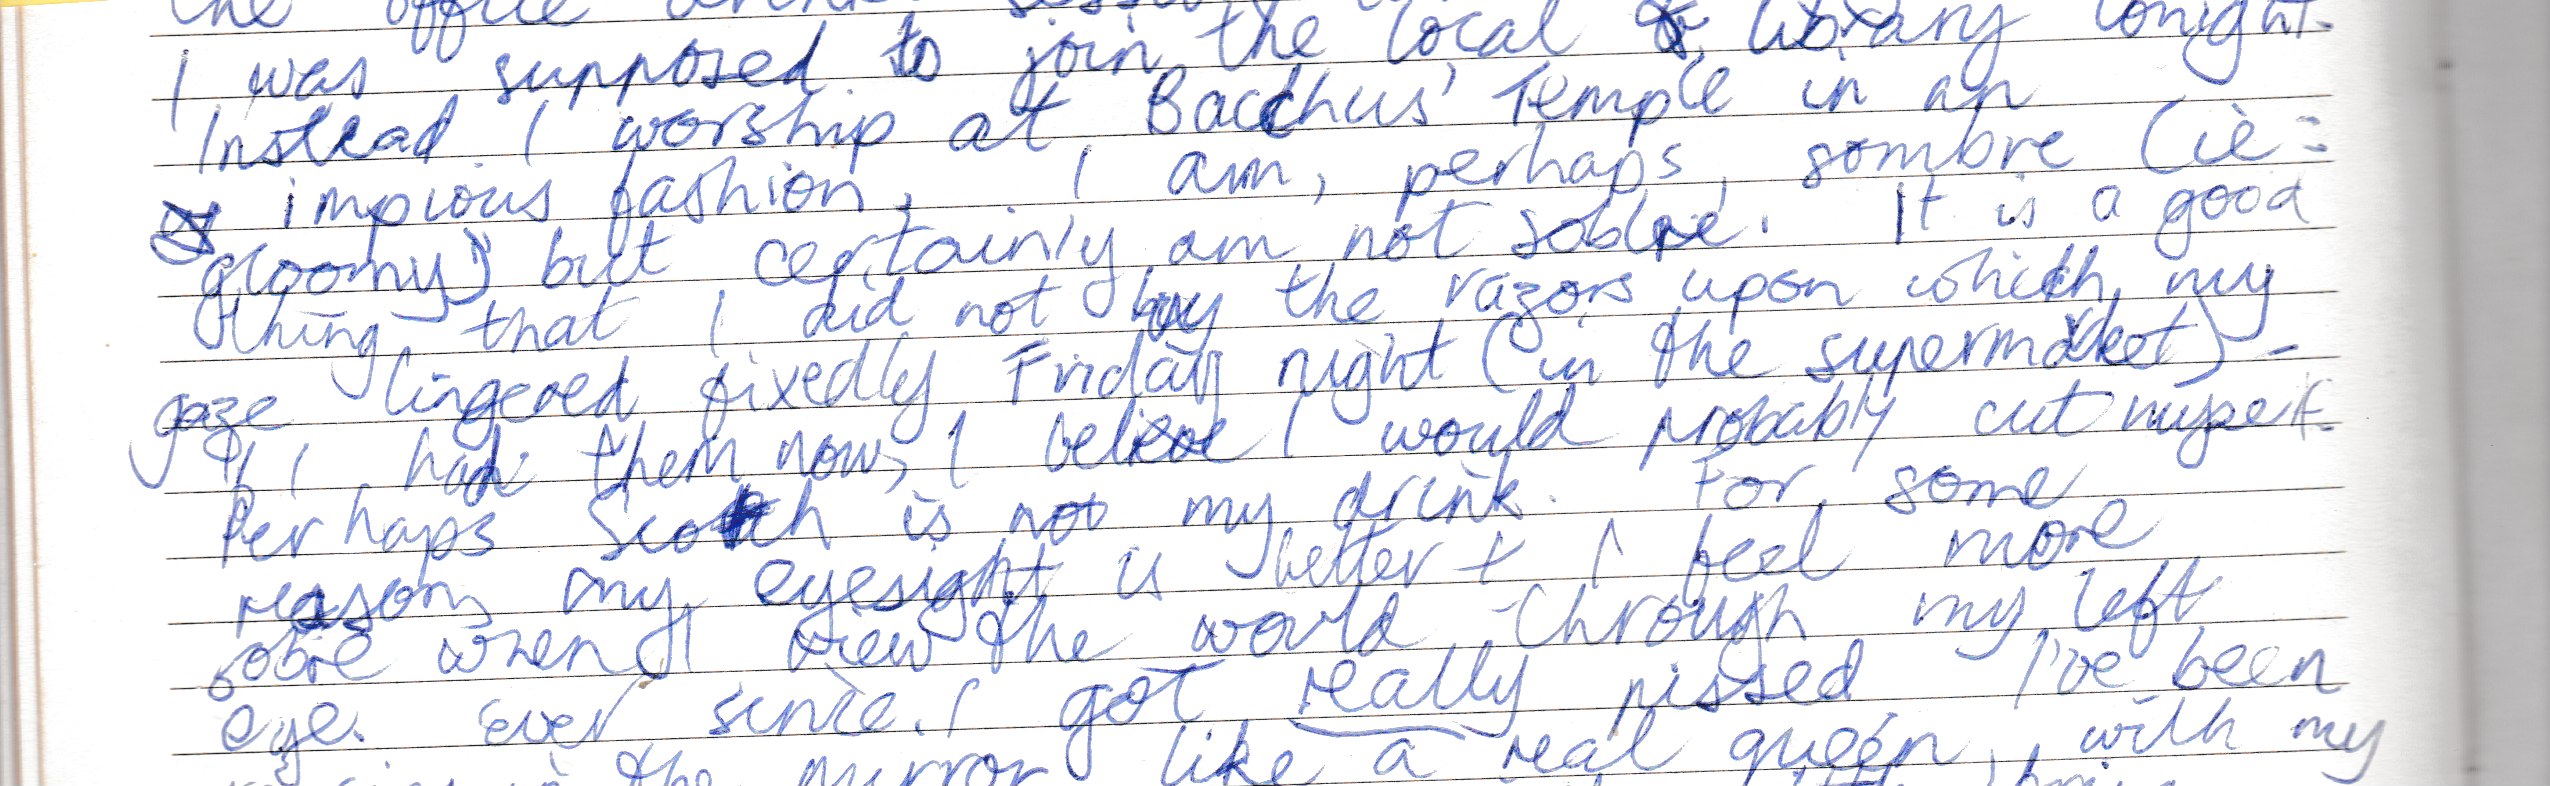 the office drink
I was supposed to join the local library tonight.
Instead I worship at Bacchus' Temple in an
impious fashion. I am, perhaps, sombre (ie:
gloomy) but certainly am not sobre. It is a good
thing that I did not buy the razors upon which my
gaze lingered fixedly Friday night (in the supermarket) -
If I had them now, I believe I would probably cut myself.
Perhaps Scotch is not my drink. For some
reason, my eyesight is better + I feel more
sobre when I view the world through my left
eye. Ever since I got really pissed I've been
in the mirror like a real queen, with my